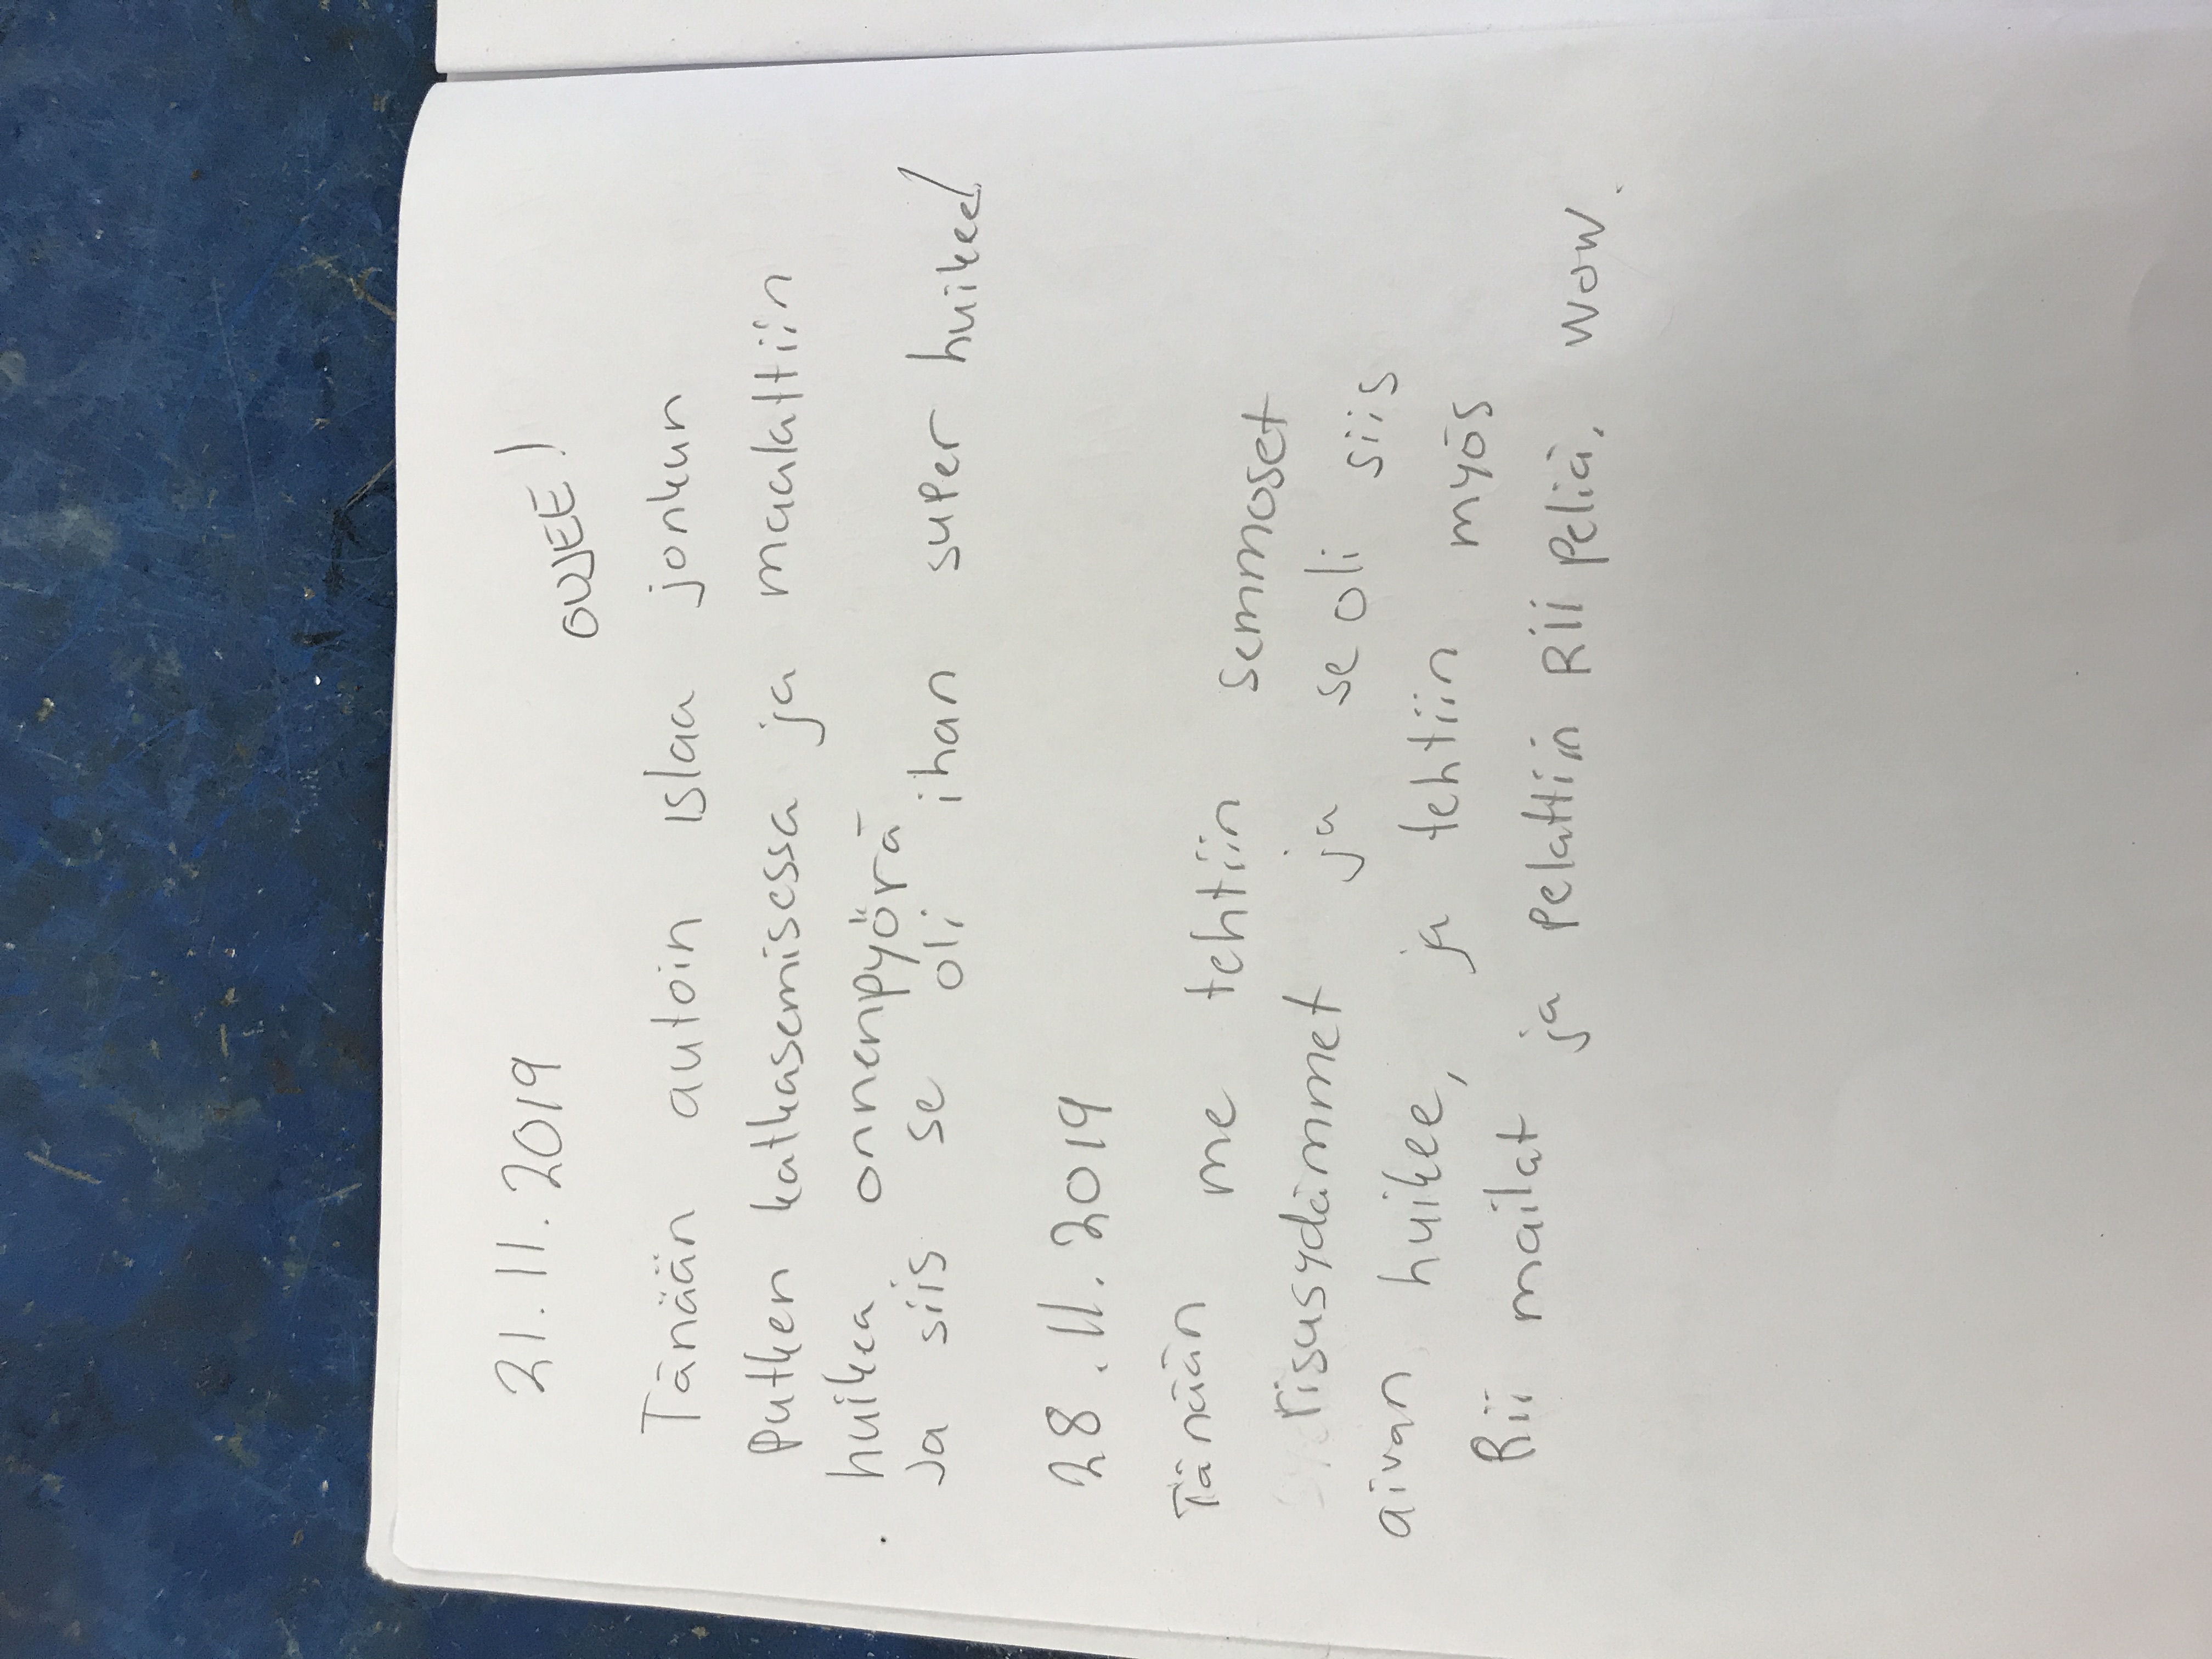 21.11.2019
OUJEE!
Tänään autoin Islaa jonkun
Putken katkasemisessa ja maalattiin
huikea onnenpyörä
Ja siis se oli ihan super huikee!
28.11.2019
Tänään me tehtiin semmoset
risusydämmet ja se oli siis
aivan huikee, ja tehtiin myös
Rii mailat ja Pelattiin Rii Peliä, wow.